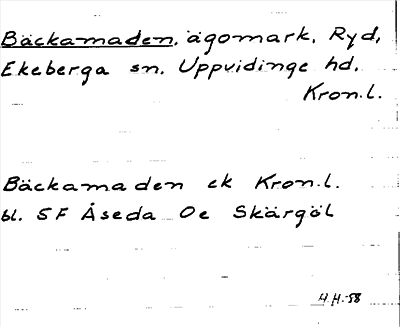 Bäckamaden, ägomark, Ryd,
Ekeberga sn. Uppvidinge hd.
Kron.l.
Bäckamaden ek Kron.l.
bl. 5F Åseda Oe Skärgöl
H.H.-58